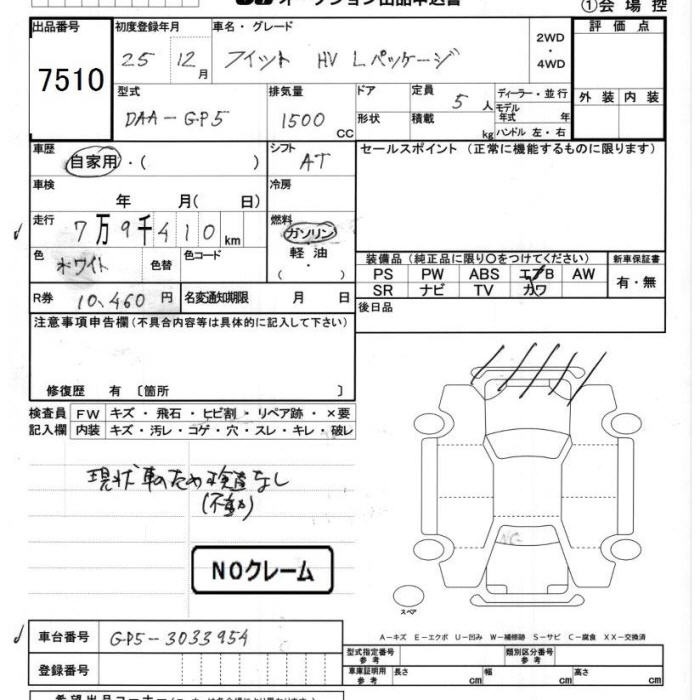 オークション出品申込書
①会場控
出品番号 7510
初度登録年月 25 12月
車名・グレード フィット HV Lパッケージ
2WD ・ 4WD
評価点
外装 内装
型式 DAA-GP5
排気量 1500 CC
ドア 形状
定員 5人
積載 kg
ディーラー・並行
モデル年式 年
ハンドル 左・右
車歴 自家用・( )
シフト AT
セールスポイント (正常に機能するものに限ります)
車検 年 月( 日)
冷房
走行 7万9千410km
燃料 ガソリン 軽油 ( ・ )
色 ホワイト 色替 色コード
装備品(純正品に限り○をつけてください) 新車保証書
PS PW ABS エアB AW 有・無
SR ナビ TV カワ
R券 10,460円 名変通知期限 月 日
後日品
注意事項申告欄(不具合内容等は具体的に記入して下さい)
修復歴 有 〔箇所 〕
検査員 FW キズ・飛石・ヒビ割・リペア跡・×要
記入欄 内装 キズ・汚レ・コゲ・穴・スレ・キレ・破レ
現状車のため検査なし
(不動)
NOクレーム
スペア
A-キズ E-エクボ U-凹み W-補修跡 S-サビ C-腐食 XX-交換済
車台番号 GP5-3033954
登録番号
型式指定番号 参考 類別区分番号 参考
車庫証明用 参考 長さ cm 幅 cm 高さ cm